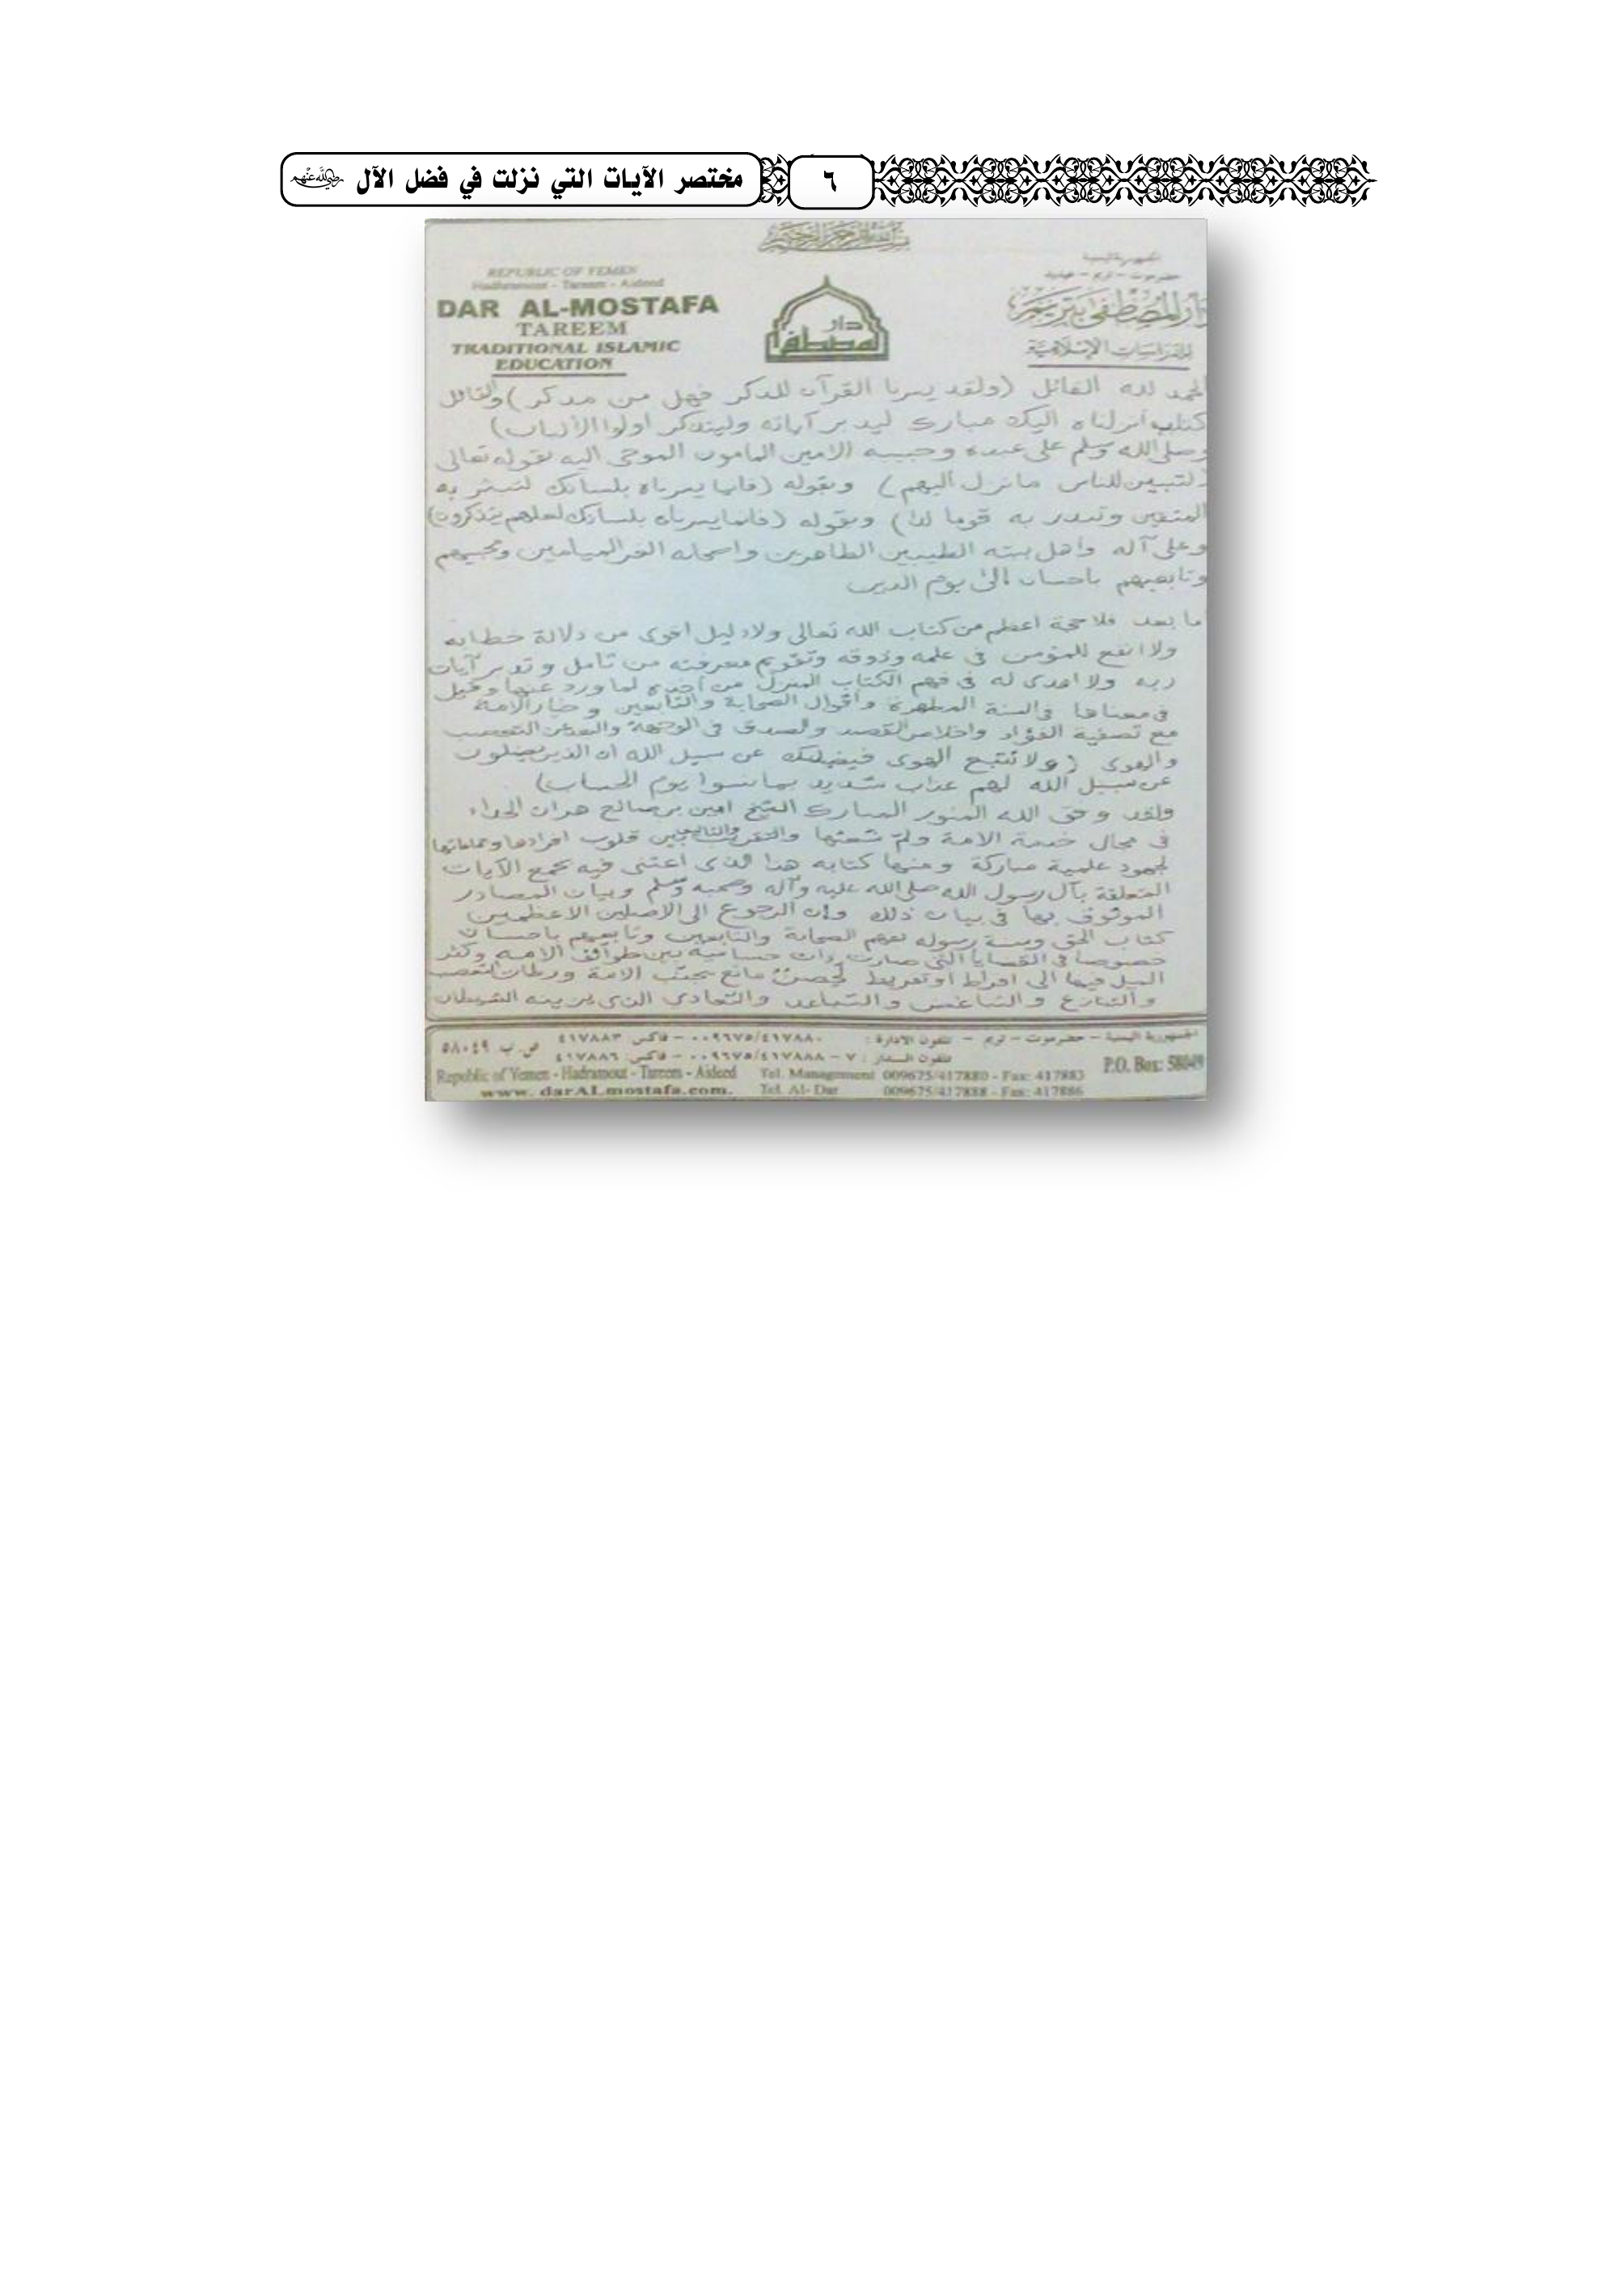 مختصر الآيات التي نزلت في فضل الآل رضي الله عنهم
٦
بسم الله الرحمن الرحيم
REPUBLIC OF YEMEN
Hadhramout - Tareem - Aideed
DAR AL-MOSTAFA
TAREEM
TRADITIONAL ISLAMIC
EDUCATION
دار المصطفى
الجمهورية اليمنية
حضرموت - تريم - عيديد
دار المصطفى بتريم
للدراسات الإسلامية
الحمد لله القائل (ولقد يسرنا القرآن للذكر فهل من مدكر) والقائل
كتاب أنزلناه اليك مبارك ليدبر آياته وليتذكر اولوا الألباب)
وصلى الله وسلم على عبده وحبيبه الامين المامون الموحى اليه بقوله تعالى
لتبين للناس ما نزل اليهم) وبقوله (فانما يسرناه بلسانك لتبشر به
المتقين وتنذر به قوما لدا) وبقوله (فانما يسرناه بلسانك لعلهم يتذكرون)
وعلى آله واهل بيته الطيبين الطاهرين واصحابه الغر الميامين ومحبيهم
وتابعيهم باحسان الى يوم الدين
اما بعد فلا حجة اعظم من كتاب الله تعالى ولا دليل اقوى من دلالة خطابه
ولا انفع للمؤمن في علمه وذوقه وتقويم معرفته من تامل وتدبر آيات
ربه ولا اهدى له في فهم الكتاب المنزل من اخذه لما ورد عنها وقيل
في معناها في السنة المطهرة واقوال الصحابة والتابعين وخيار الامة
مع تصفية الفؤاد واخلاص القصد والصدق في الوجهة والبعد عن التعصب
والهوى (ولا تتبع الهوى فيضلك عن سبيل الله ان الذين يضلون
عن سبيل الله لهم عذاب شديد بما نسوا يوم الحساب)
ولقد وفق الله المنور المبارك الشيخ امين بن صالح هران الحداء
في مجال خدمة الامة ولم شعثها والتقريب والتاليف بين قلوب افرادها وجماعاتها
لجهود علمية مباركة ومنها كتابه هذا الذي اعتنى فيه بجمع الآيات
المتعلقة بآل رسول الله صلى الله عليه وآله وصحبه وسلم وبيان المصادر
الموثوق بها في بيان ذلك وان الرجوع الى الاصلين الاعظمين
كتاب الحق وسنة رسوله بفهم الصحابة والتابعين وتابعيهم باحسان
خصوصا في القضايا التي صارت ذات حساسية بين طوائف الامة وكثر
الميل فيها الى افراط او تفريط لحصن مانع يجنب الامة ورطات التعصب
والتنازع والتباغض والتباعد والتعادي الذي يزينه الشيطان
الجمهورية اليمنية - حضرموت - تريم - تلفون الادارة: ٠٠٩٦٧٥/٤١٧٨٨٠ - فاكس ٤١٧٨٨٣
تلفون الدار: ٧ - ٠٠٩٦٧٥/٤١٧٨٨٨ - فاكس: ٤١٧٨٨٦ ص.ب ٥٨٠٤٩
Republic of Yemen - Hadramout - Tareem - Aideed Tel. Management 009675/417880 - Fax: 417883 P.O. Box: 58049
www. darALmostafa.com. Tel. Al- Dar 009675/417888 - Fax: 417886